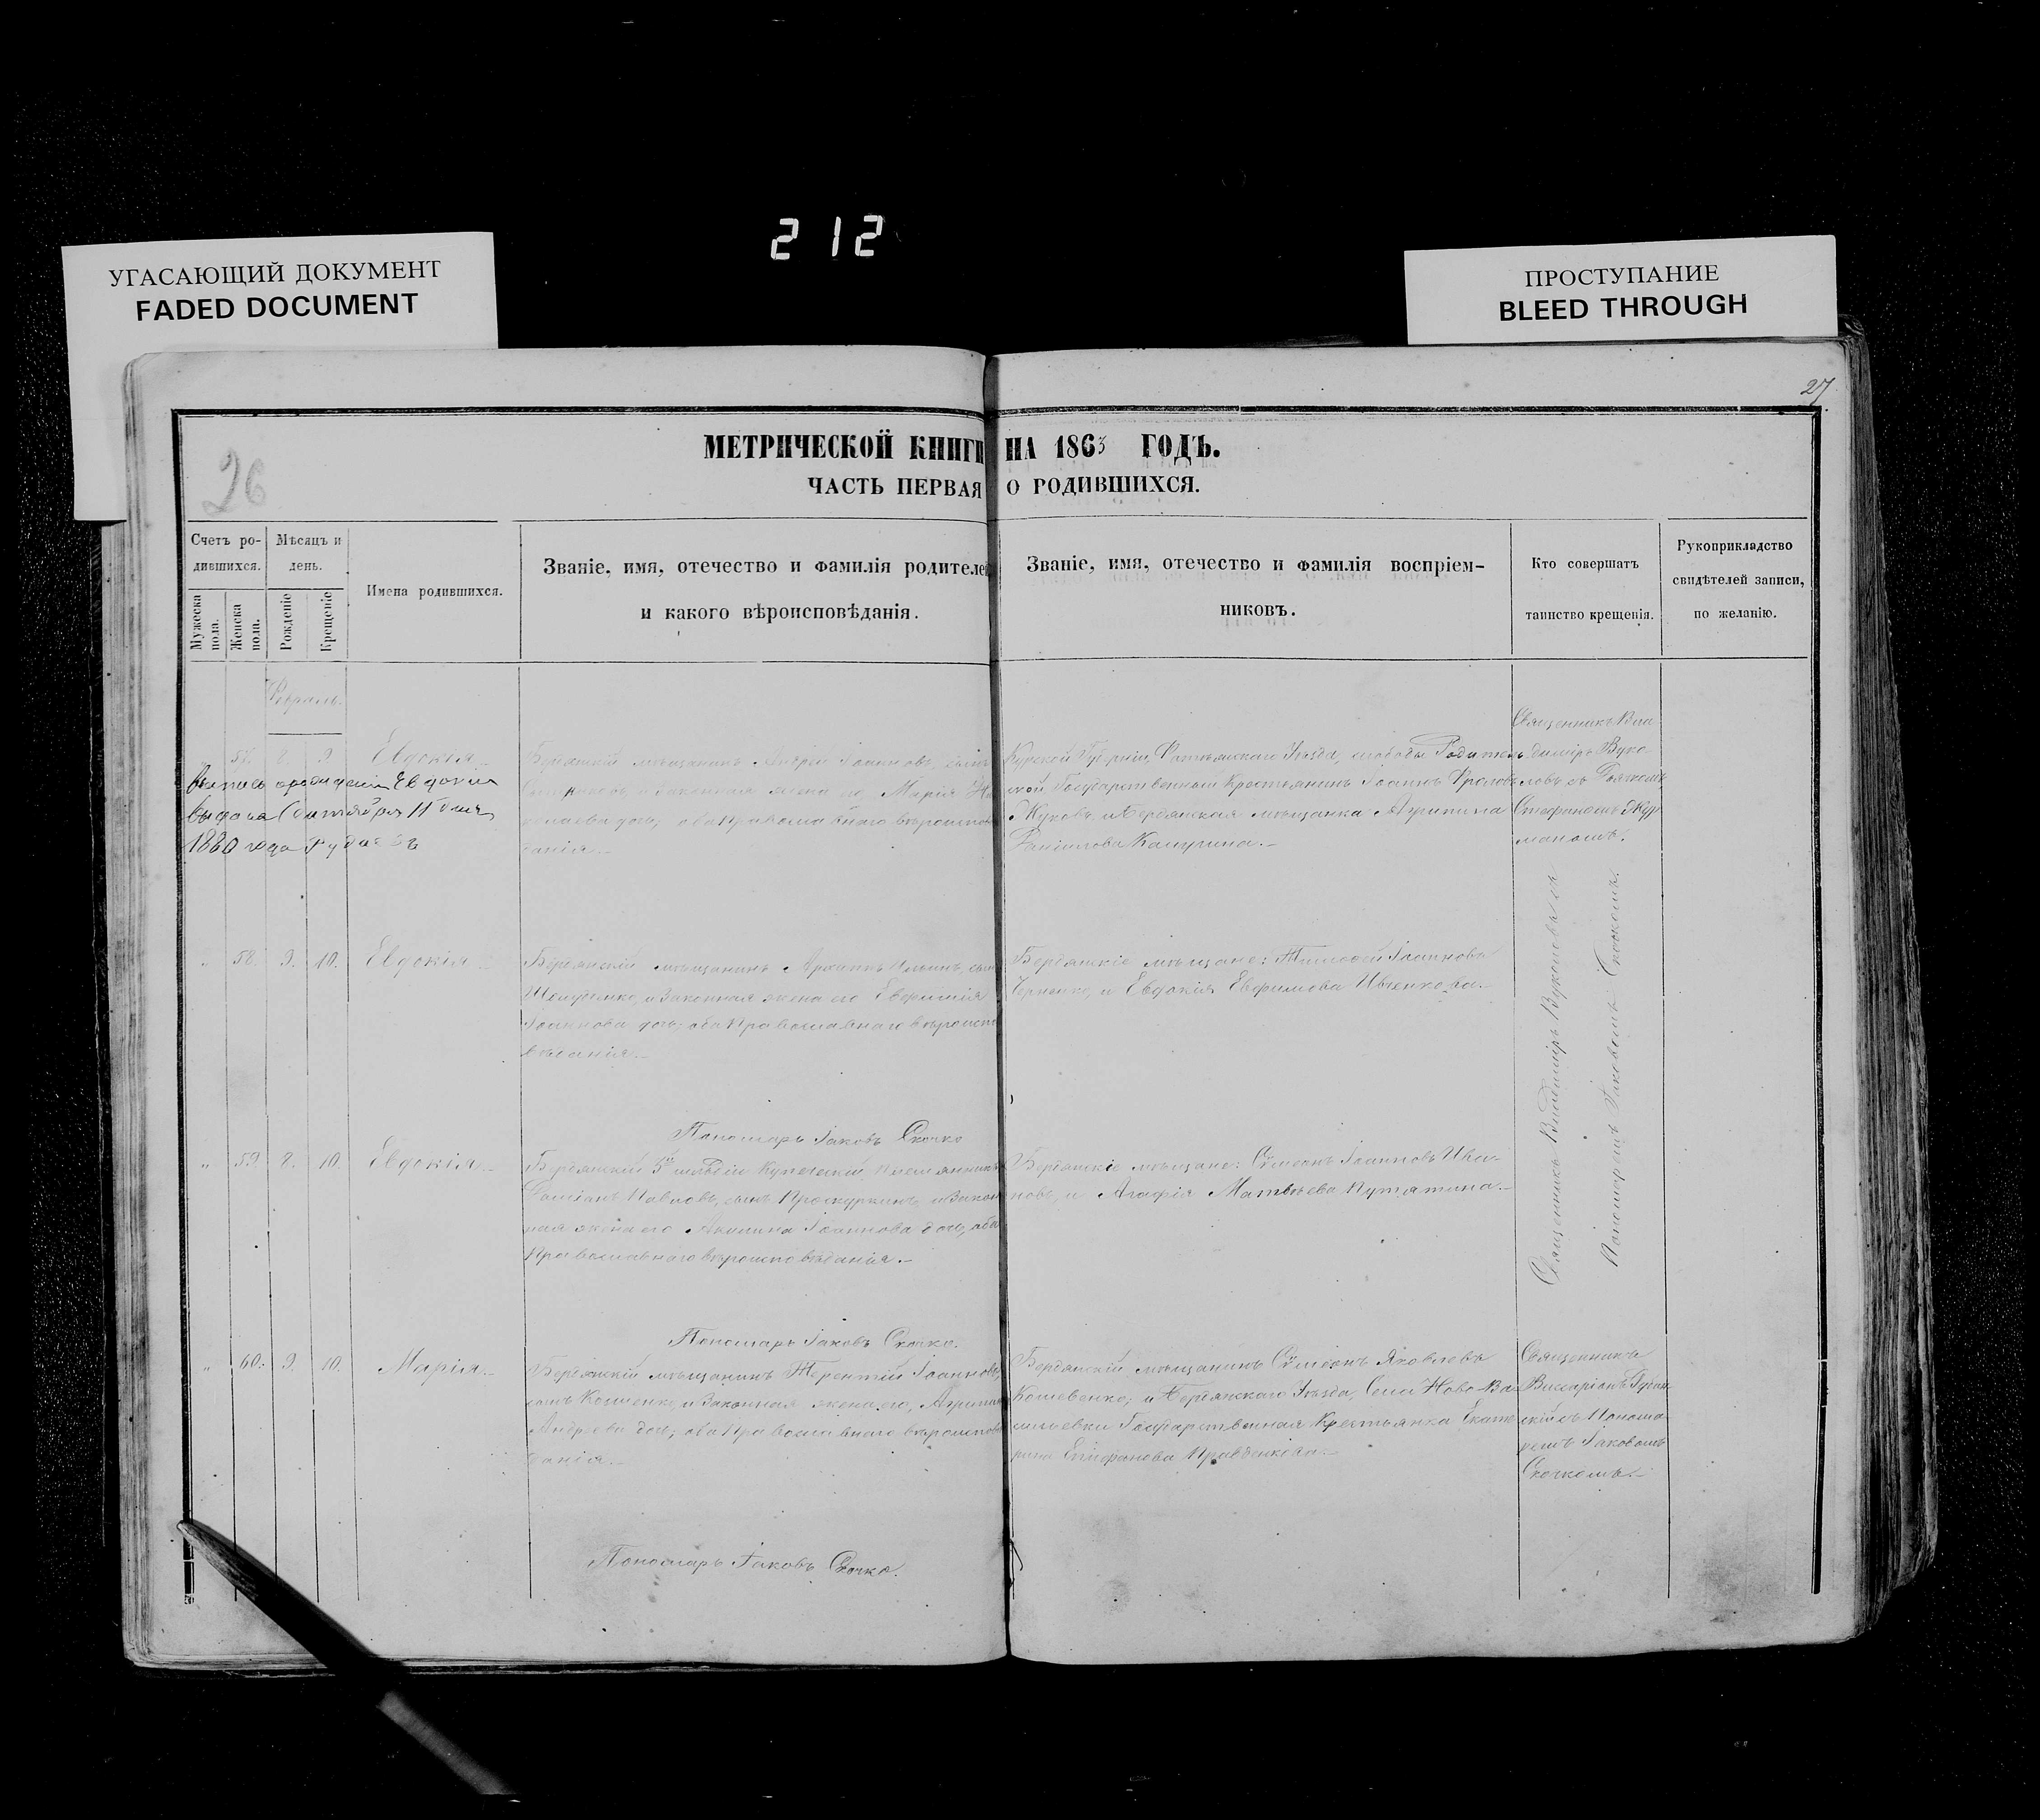 212
УГАСАЮЩИЙ ДОКУМЕНТ
FADED DOCUMENT
ПРОСТУПАНИЕ
BLEED THROUGH
27
26
МЕТРИЧЕСКОЙ КНИГИ НА 1863 ГОДЪ.
ЧАСТЬ ПЕРВАЯ О РОДИВШИХСЯ.
Счетъ ро-
дившихся.
Мужеска пола.
Женска пола.
Мѣсяцъ и
день.
Рожденіе
Крещеніе
Имена родившихся.
Званіе, имя, отечество и фамилія родителей
и какого вѣроисповѣданія.
Званіе, имя, отечество и фамилія воспріем-
никовъ.
Кто совершатъ
таинство крещенія.
Рукоприкладство
свидѣтелей записи,
по желанію.
Февраль.
57. 8. 9. Евдокія
Бердянскій мѣщанинъ Андрей Іоанновъ, сынъ
и законная жена его, Марія Ни
колаева дочь; оба Православнаго вѣроиспов
данія.
Курской Губерніи, Уѣзда, слободы
Государственный Крестьянинъ Іоаннъ Фроловъ
Жуковъ, и Бердянская мѣщанка Агрипина
Священникъ Вла
димиръ Вуко
ловъ съ Дьячкомъ
Стефаномъ
Евдокіи
выдана Сентября 11 дня
1880 года
" 58. 9. 10. Евдокія
Бердянскій мѣщанинъ Ильинъ, сынъ
и законная жена его
Іоаннова дочь; оба Православнаго вѣроиспо
вѣданія.
Бердянскіе мѣщане: Тимофей Іоанновъ
и Евдокія Евфимова Ивченкова.
Священникъ Владиміръ Вуколовъ съ
Пономаремъ Іаковомъ Скочкомъ.
Пономарь Іаковъ Скочко
" 59. 8. 10. Евдокія
Бердянскій 3й гильдіи Купеческій племянникъ
Даміанъ Павловъ, сынъ Проскуркинъ, и Закон
ная жена его Акилина Іоаннова дочь, оба
Православнаго вѣроисповѣданія.
Бердянскіе мѣщане: Сѵмеонъ Іоанновъ Ива-
новъ, и Агафія Матвѣева Путятина.
Пономарь Іаковъ Скочко.
" 60. 9. 10. Марія.
Бердянскій мѣщанинъ Терентій Іоанновъ,
сынъ и Законная жена его, Агрипина
Андреева дочь; оба Православнаго вѣроиспов
данія.
Бердянскій мѣщанинъ Сѵмеонъ Яковлевъ
Кошевенко; и Бердянскаго Уѣзда, Села Ново-Ва
сильевки Государственная Крестьянка Екате
рина Епифанова Правденкова.
Священникъ
Виссаріонъ
скій съ Понома
ремъ Іаковомъ
Скочкомъ.
Пономарь Іаковъ Скочко.